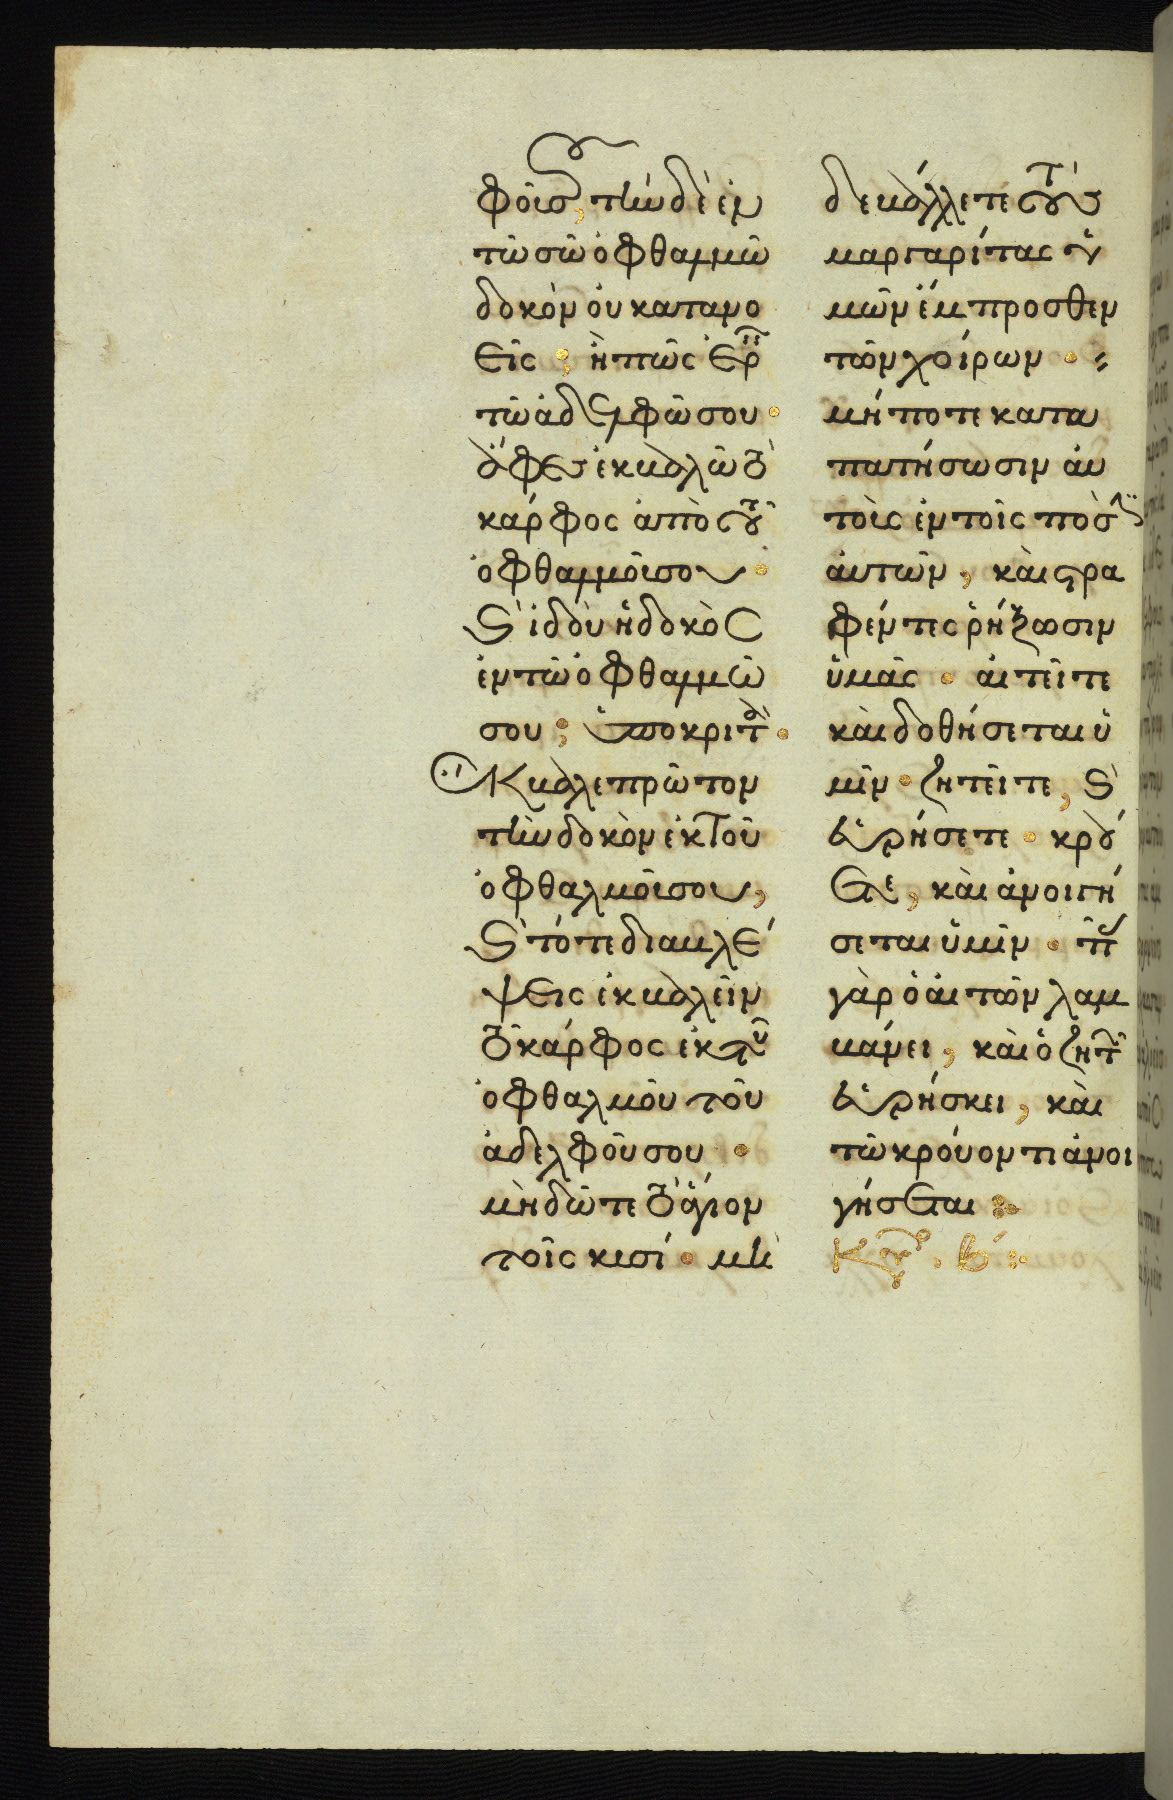 φοῦ σου, τὴν δὲ ἐν
τῷ σῷ ὀφθαλμῷ
δοκὸν οὐ κατανο
εῖς ; ἢ πῶς ἐρεῖς
τῷ ἀδελφῷ σου ·
ἄφες ἐκβάλω τὸ
κάρφος ἀπὸ τοῦ
ὀφθαλμοῦ σου ·
καὶ ἰδοὺ ἡ δοκὸς
ἐν τῷ ὀφθαλμῷ
σου ; ὑποκριτὰ ·
Ἔκβαλε πρῶτον
τὴν δοκὸν ἐκ τοῦ
ὀφθαλμοῦ σου,
καὶ τότε διαβλέ
ψεις ἐκβαλεῖν
τὸ κάρφος ἐκ τοῦ
ὀφθαλμοῦ τοῦ
ἀδελφοῦ σου ·
μὴ δῶτε τὸ ἅγιον
τοῖς κυσί · μὴ
δὲ βάλλετε τοὺς
μαργαρίτας ὑ
μῶν ἔμπροσθεν
τῶν χοίρων ·
μήποτε κατα
πατήσωσιν αὐ
τοὺς ἐν τοῖς ποσὶν
αὐτῶν, καὶ στρα
φέντες ῥήξωσιν
ὑμᾶς · αἰτεῖτε
καὶ δοθήσεται ὑ
μῖν · ζητεῖτε, καὶ
εὑρήσετε · κρού
ετε, καὶ ἀνοιγή
σεται ὑμῖν · πᾶς
γὰρ ὁ αἰτῶν λαμ
βάνει, καὶ ὁ ζητῶν
εὑρίσκει, καὶ
τῷ κρούοντι ἀνοι
γήσεται :